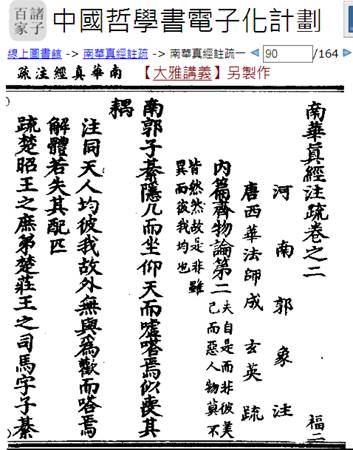 諸子百家 中國哲學書電子化計劃
線上圖書館 -> 南華真經註疏 -> 南華真經註疏一 90 /164
南華真經註疏 【大雅講義】另製作
南華真經注疏卷之二 福二
河南郭象注
唐西華法師成玄英疏
內篇齊物論第二 夫自是而非彼美
己而惡人物莫不
皆然然故是非雖
異而彼我均也
南郭子綦隱几而坐仰天而噓嗒焉似喪其
耦
注同天人均彼我故外無與爲歡而嗒焉
解體若失其配匹
疏楚昭王之庶弟楚莊王之司馬字子綦